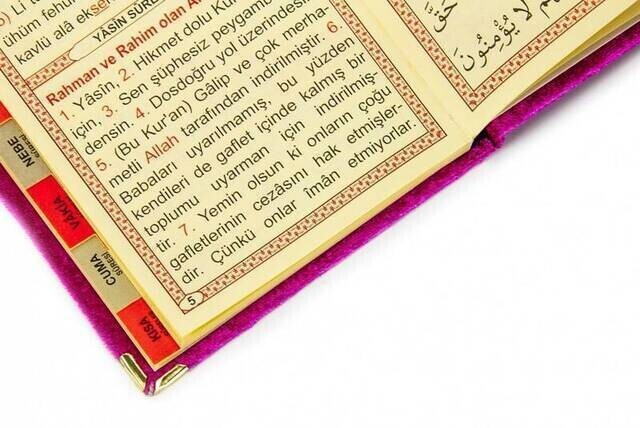 Lİ t
ühüm fehu
kavlü alâ ekse
YÂSİN SÛR
Rahman ve Rahim olan Al
1. Yâsin, 2. Hikmet dolu Kur
için, 3. Sen şüphesiz peygam
densin. 4. Dosdoğru yol üzerindesin
5. (Bu Kur'an) Gâlip ve çok merha-
metli Allah tarafından indirilmiştir. 6.
Babaları uyarılmamış, bu yüzden
kendileri de gaflet içinde kalmış bir
toplumu uyarman için indirilmiş-
tir. 7. Yemin olsun ki onların çoğu
gafletlerinin cezasını hak etmişler-
dir. Çünkü onlar îmân etmiyorlar.
5
حَقَّ
لَا يُؤْمِنُونَ
NEBE
VÂKIA
CUMA
SÛRESİ
KISA